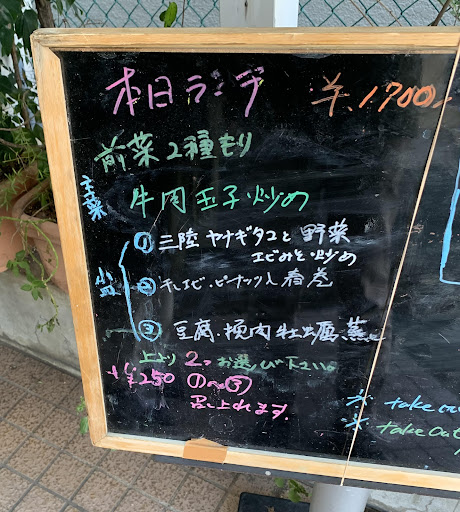 本日ランチ ¥1700
前菜2種もり
主菜 牛肉玉子炒め
小皿
① 三陸ヤナギタコと野菜
エビみそ炒め
② 干エビ・ピーナッツ入春巻
③ 豆腐・挽肉牡蛎蒸し
上より2つお選び下さい。
¥250 ①〜③
召し上れます。
※ take ou
※ take out